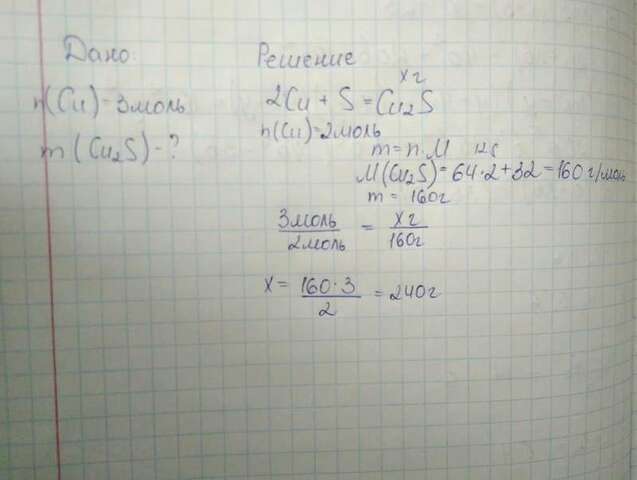 Дано:
n(Cu) = 3моль
m (Cu₂S) - ?
Решение
x г
2Cu + S = Cu₂S
n(Cu) = 2моль
m = n · M
M(Cu₂S) = 64 · 2 + 32 = 160 г/моль
m = 160г
3моль / 2моль = x г / 160г
x = 160 · 3 / 2 = 240г